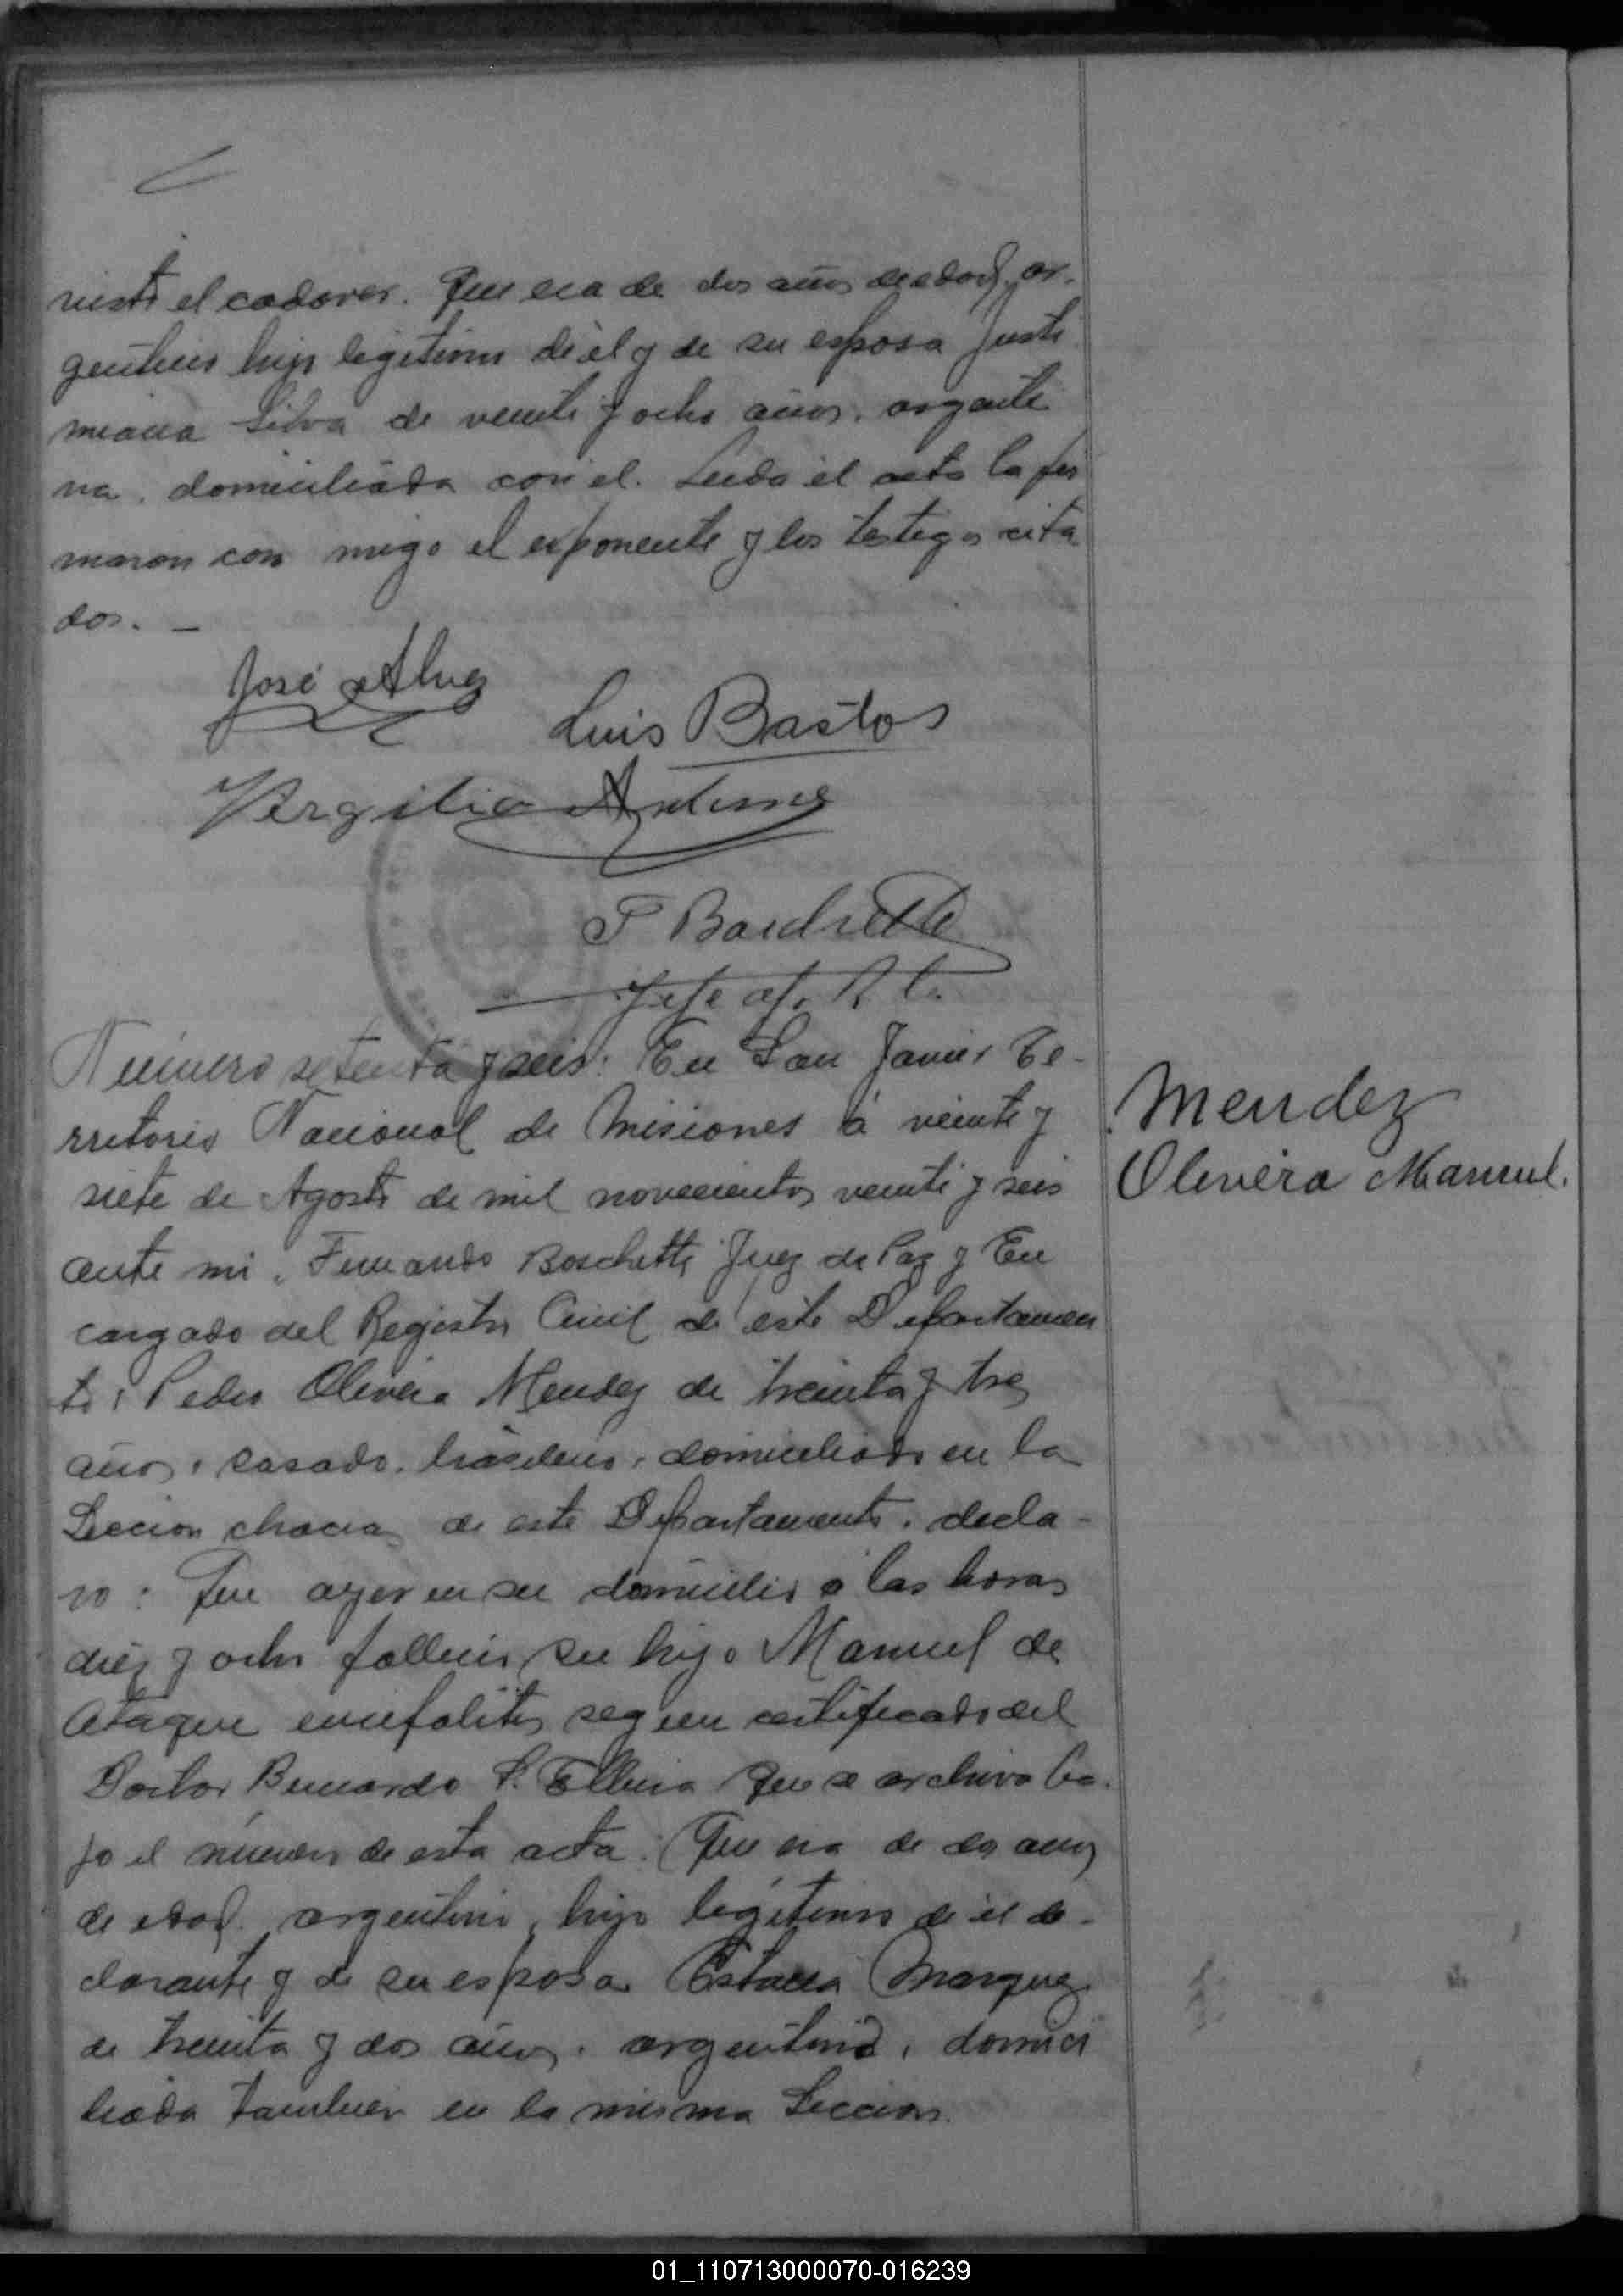 visto el cadaver. Que era de dos años de edad, ar-
gentino hijo legitimo de él y de su esposa Justi
miana Silva de veinte y ocho años, argenti
na, domiciliada con el. Leida el acta la fir
maron con migo el exponente y los testigos cita
dos. —
José Alvez
Luis Bastos
Virgilio Antunes
F Boschetti
Jefe of. R C.
Número setenta y seis: En San Javier Te-
rritorio Nacional de Misiones á veinte y
siete de Agosto de mil novecientos veinte y seis
ante mi, Fernando Boschetti Juez de Paz y En
cargado del Registro Civil de este Departamen
to; Pedro Olivera Mendez de treinta y tres
años, casado, brasilero, domiciliado en la
Seccion chacra de este Departamento, decla-
ro: Que ayer en su domicilio á las horas
diez y ocho fallecio su hijo Manuel de
Ataque encefalitis segun certificado del
Doctor Bernardo L. que se archiva ba-
jo el número de esta acta. Que era de dos años
de edad, argentino, hijo legítimo de él de-
clarante y de su esposa Marquez
de treinta y dos años, argentina, domici
liada tambien en la misma Seccion.
Mendez
Olivera Manuel.
01_110713000070-016239